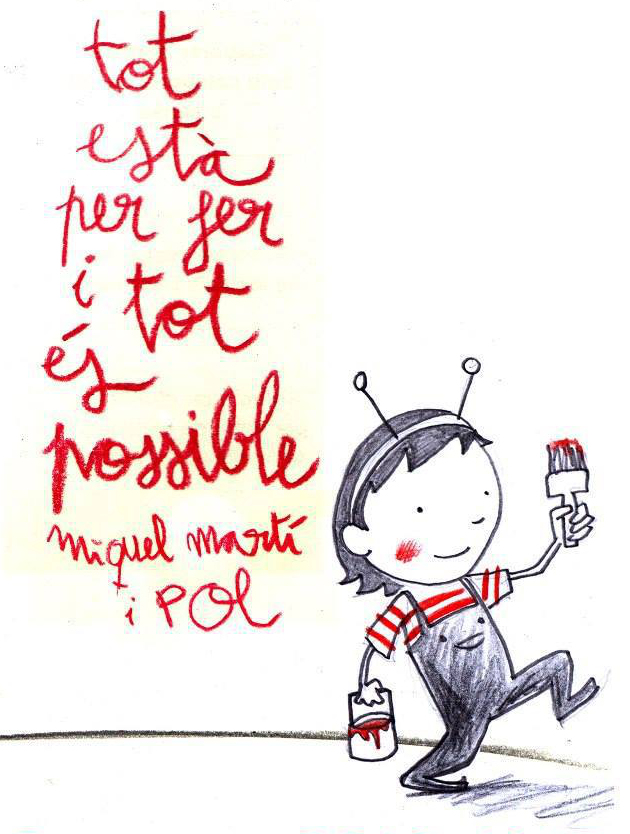 tot
està
per fer
i tot
és
possible
miquel martí
i POL